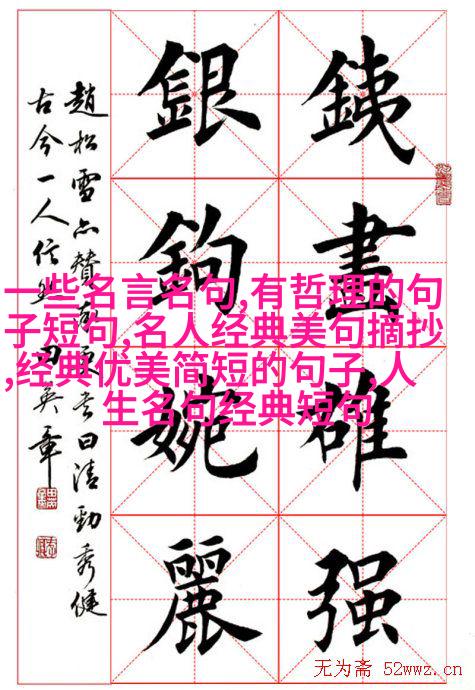 銕畫雄强
銀鉤婉麗
趙松雪亦贊書曰清勁秀健
古今一人信 田英章
一些名言名句,有哲理的句
子短句,名人经典美句摘抄
,经典优美简短的句子,人
生名句经典短句
无为斋 52wwz.cn